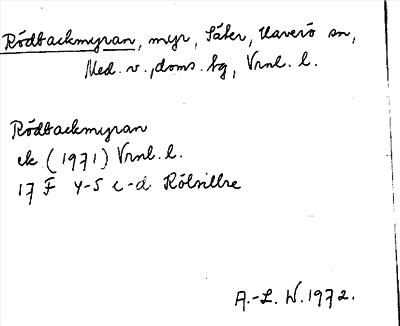 Rödbackmyran, myr, Säter, Haverö sn,
Med. v., doms. hg, Vrnl. l.
Rödbackmyran
ek (1971) Vrnl. l.
17 F 4-5 c-d Rölsillre
A.-L. W. 1972.